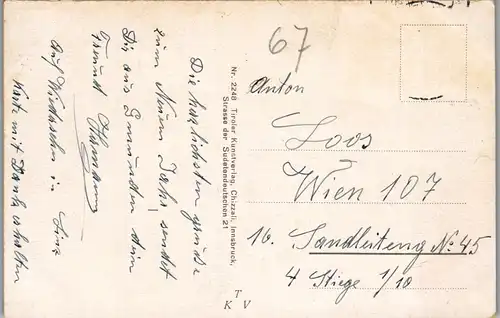 Die herzlichsten Grüsse
zum Neuen Jahr, sendet
Dir aus Gmunden dein
Freund
Auf Wiedersehn in Linz
Karte mit Dank erhalten
Nr. 2248 Tiroler Kunstverlag, Chizzali, Innsbruck,
Strasse der Sudetendeutschen 21
67
Anton
Loos
Wien 107
16. Sandleiteng No 45
4 Stiege 1/10
T
K V